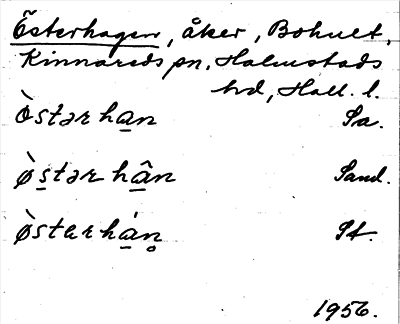 Österhagen, åker, Bohult,
Kinnareds sn, Halmstads
hd, Hall. l.
ò̀stər ha̲n Sa.
ø̀s̲tər hâ̲n Sand.
ø̀stər há̲n̥ St.
1956.